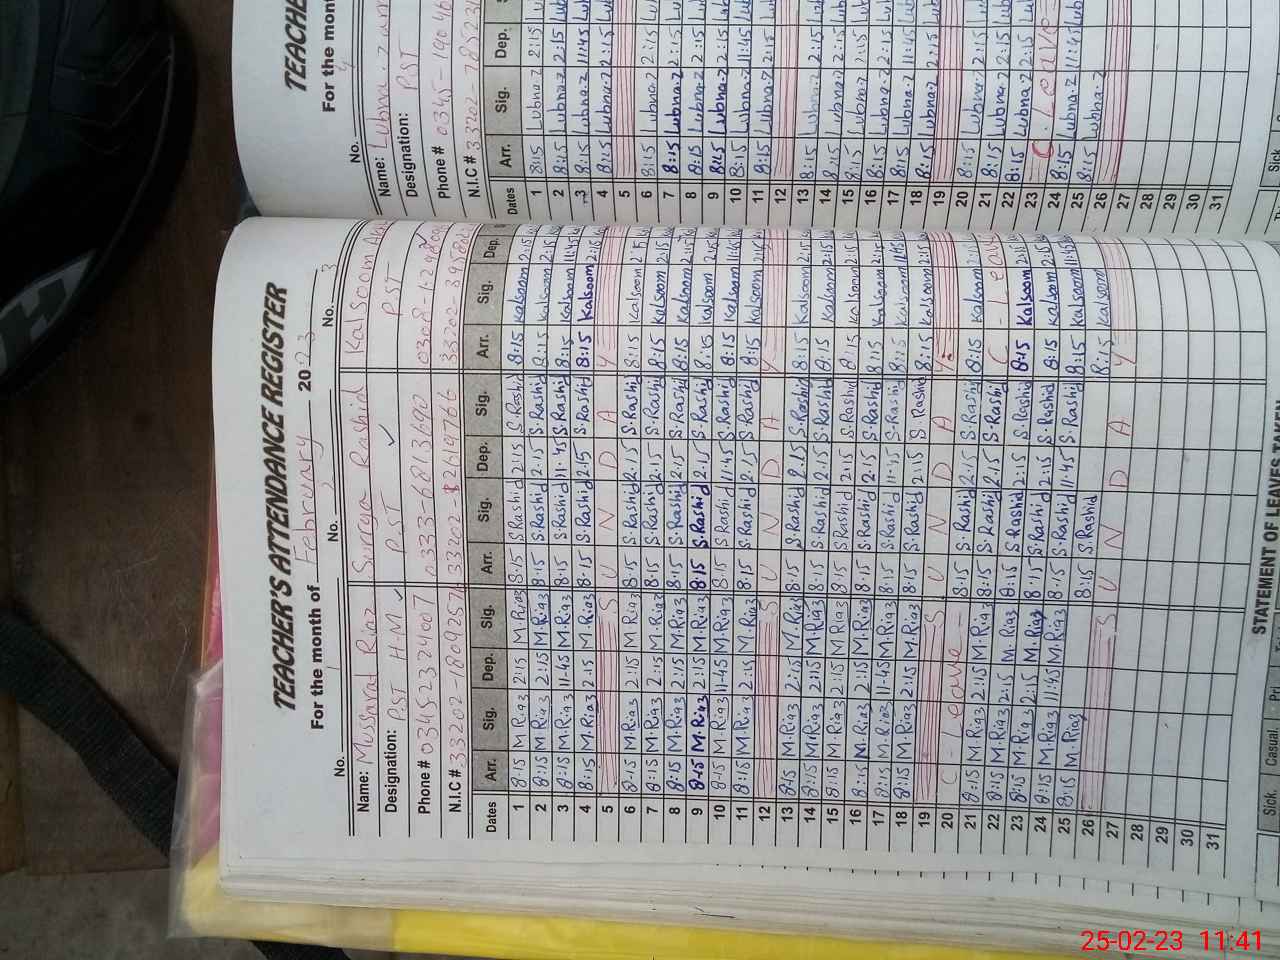 TEACHER'S ATTENDANCE REGISTER
For the month of February 2023
No. 1 No. No. 3
Name: Mussarat Riaz Surrya Rashid Kalsoom
Designation: PST H.M PST PST
Phone # 03452324007 0333-6813690
N.I.C # 33202-1809257
Dates Arr. Sig. Dep. Sig. Arr. Sig. Dep. Sig. Arr. Sig. Dep.
1 8:15 M.Riaz 2:15 M.Riaz 8:15 S.Rashid 2:15 S.Rashid 8:15 Kalsoom 2:15
2 8:15 M.Riaz 2:15 M.Riaz 8:15 S.Rashid 2:15 S.Rashid 8:15 Kalsoom 2:15
3 8:15 M.Riaz 11:45 M.Riaz 8:15 S.Rashid 11:45 S.Rashid 8:15 Kalsoom 11:45
4 8:15 M.Riaz 2:15 M.Riaz 8:15 S.Rashid 2:15 S.Rashid 8:15 Kalsoom 2:15
5 S U N D A Y
6 8:15 M.Riaz 2:15 M.Riaz 8:15 S.Rashid 2:15 S.Rashid 8:15 Kalsoom 2:15
7 8:15 M.Riaz 2:15 M.Riaz 8:15 S.Rashid 2:15 S.Rashid 8:15 Kalsoom 2:15
8 8:15 M.Riaz 2:15 M.Riaz 8:15 S.Rashid 2:15 S.Rashid 8:15 Kalsoom 2:15
9 8:15 M.Riaz 2:15 M.Riaz 8:15 S.Rashid 2:15 S.Rashid 8:15 Kalsoom 2:15
10 8:15 M.Riaz 11:45 M.Riaz 8:15 S.Rashid 11:45 S.Rashid 8:15 Kalsoom 11:45
11 8:15 M.Riaz 2:15 M.Riaz 8:15 S.Rashid 2:15 S.Rashid 8:15 Kalsoom 2:15
12 S U N D A Y
13 8:15 M.Riaz 2:15 M.Riaz 8:15 S.Rashid 2:15 S.Rashid 8:15 Kalsoom 2:15
14 8:15 M.Riaz 2:15 M.Riaz 8:15 S.Rashid 2:15 S.Rashid 8:15 Kalsoom 2:15
15 8:15 M.Riaz 2:15 M.Riaz 8:15 S.Rashid 2:15 S.Rashid 8:15 Kalsoom 2:15
16 8:15 M.Riaz 2:15 M.Riaz 8:15 S.Rashid 2:15 S.Rashid 8:15 Kalsoom 2:15
17 8:15 M.Riaz 11:45 M.Riaz 8:15 S.Rashid 11:45 S.Rashid 8:15 Kalsoom 11:45
18 8:15 M.Riaz 2:15 M.Riaz 8:15 S.Rashid 2:15 S.Rashid 8:15 Kalsoom 2:15
19 S U N D A Y
20 C - Leave - 8:15 S.Rashid 2:15 S.Rashid 8:15 Kalsoom 2:15
21 8:15 M.Riaz 2:15 M.Riaz 8:15 S.Rashid 2:15 S.Rashid C - Leave
22 8:15 M.Riaz 2:15 M.Riaz 8:15 S.Rashid 2:15 S.Rashid 8:15 Kalsoom 2:15
23 8:15 M.Riaz 2:15 M.Riaz 8:15 S.Rashid 2:15 S.Rashid 8:15 Kalsoom 2:15
24 8:15 M.Riaz 11:45 M.Riaz 8:15 S.Rashid 11:45 S.Rashid 8:15 Kalsoom 11:45
25 8:15 M.Riaz 8:15 S.Rashid 8:15 Kalsoom
26 S U N D A Y
27
28
29
30
31
STATEMENT OF LEAVES TAKEN
Sick. Casual.
TEACHER
For the month
No. 4
Name: Lubna
Designation: PST
Phone # 0345-190
N.I.C # 33202-
Dates Arr. Sig. Dep.
1 8:15 Lubna-Z 2:15
2 8:15 Lubna-Z 2:15
3 8:15 Lubna-Z 11:45
4 8:15 Lubna-Z 2:15
5
6 8:15 Lubna-Z 2:15
7 8:15 Lubna-Z 2:15
8 8:15 Lubna-Z 2:15
9 8:15 Lubna-Z 2:15
10 8:15 Lubna-Z 11:45
11 8:15 Lubna-Z 2:15
12
13 8:15 Lubna-Z 2:15
14 8:15 Lubna-Z 2:15
15 8:15 Lubna-Z 2:15
16 8:15 Lubna-Z 2:15
17 8:15 Lubna-Z 11:45
18 8:15 Lubna-Z 2:15
19
20 8:15 Lubna-Z 2:15
21 8:15 Lubna-Z 2:15
22 8:15 Lubna-Z 2:15
23 C. Leave
24 8:15 Lubna-Z 11:45
25 8:15 Lubna-Z
26
27
28
29
30
31
Sick
25-02-23 11:41